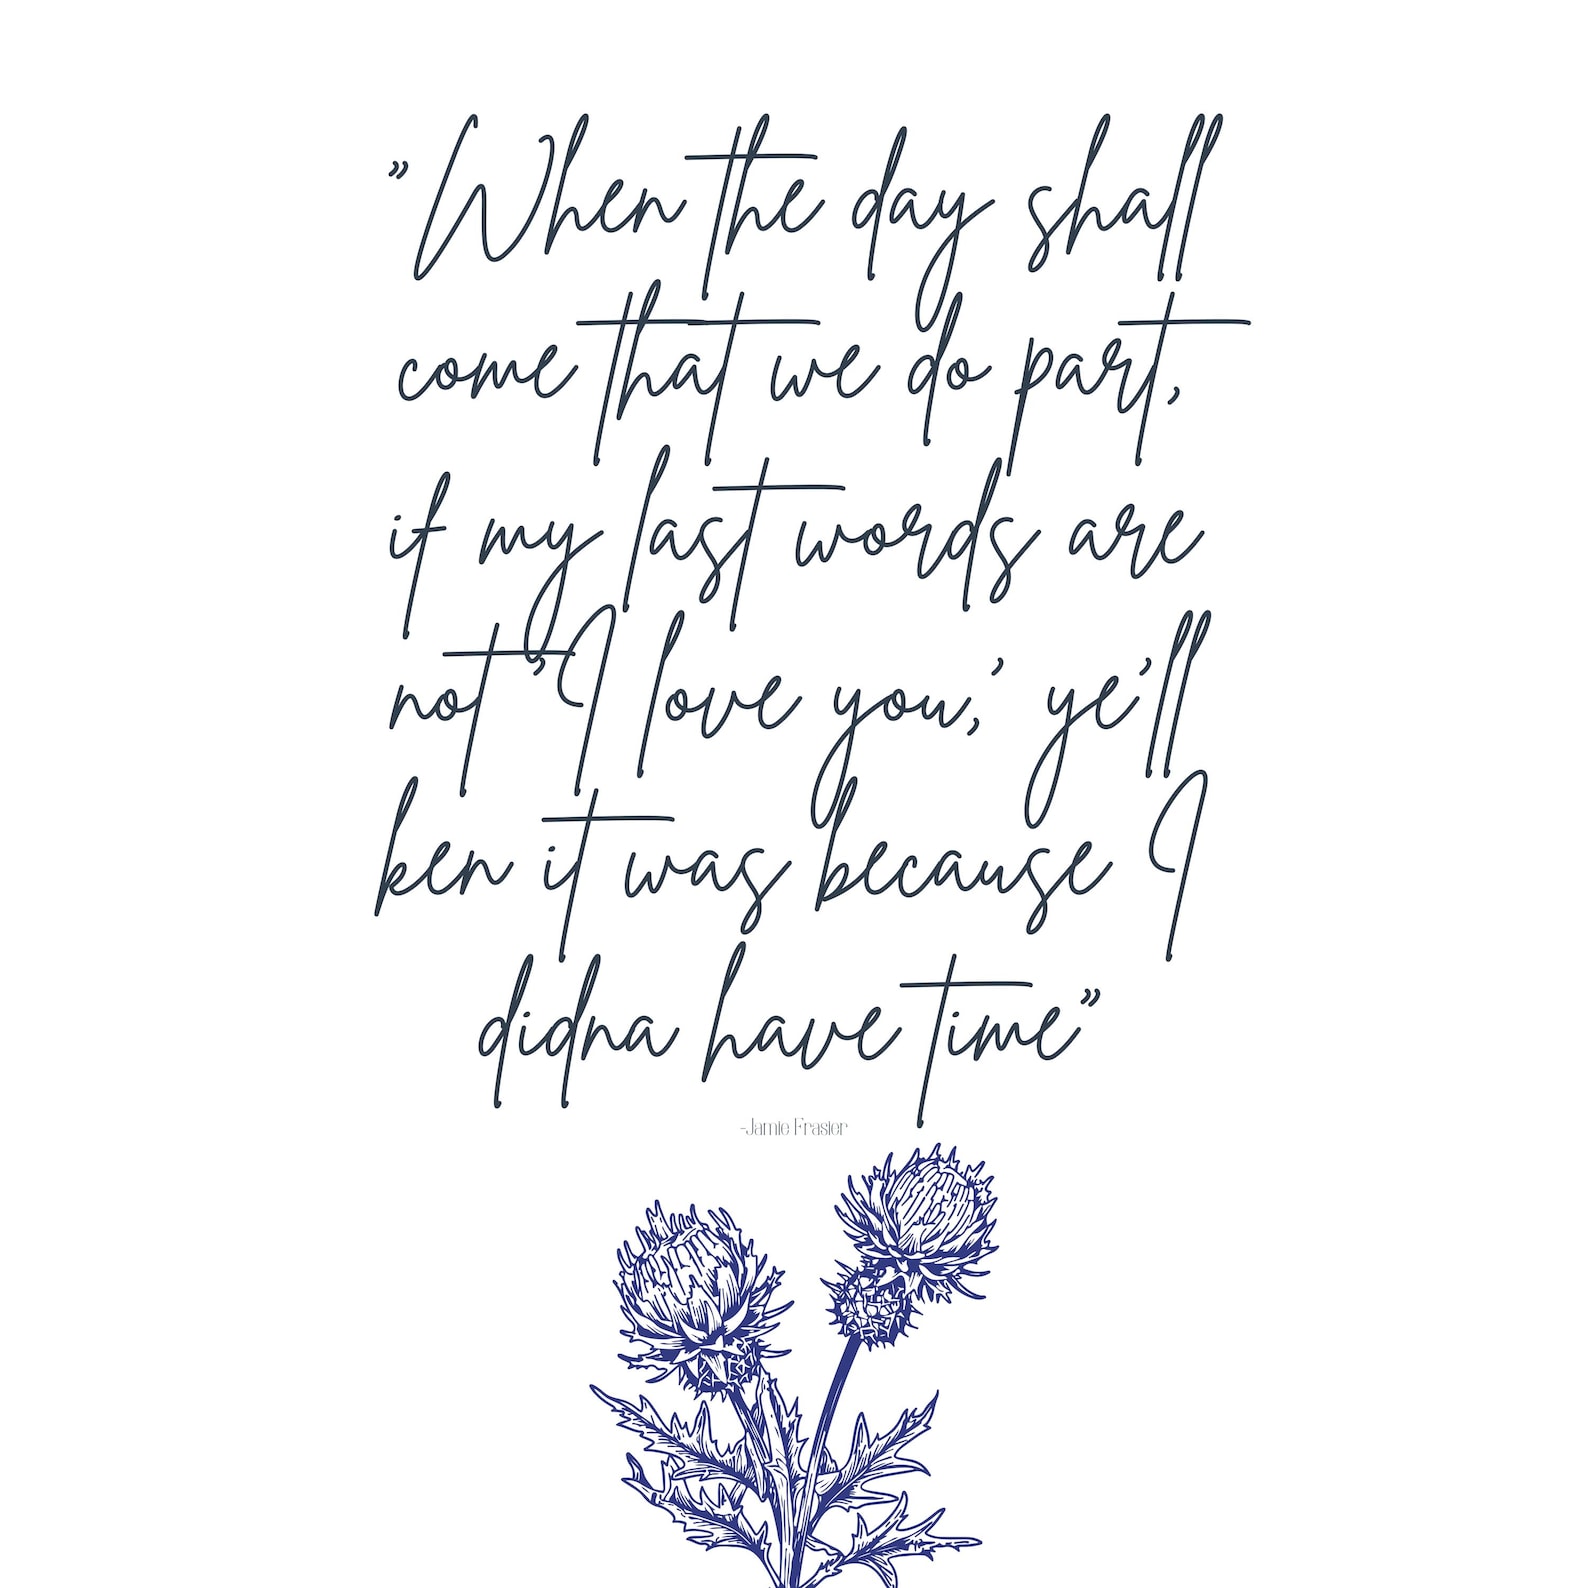 "When the day shall
come that we do part,
if my last words are
not 'I love you,' ye'll
ken it was because I
didna have time"
-Jamie Frasier